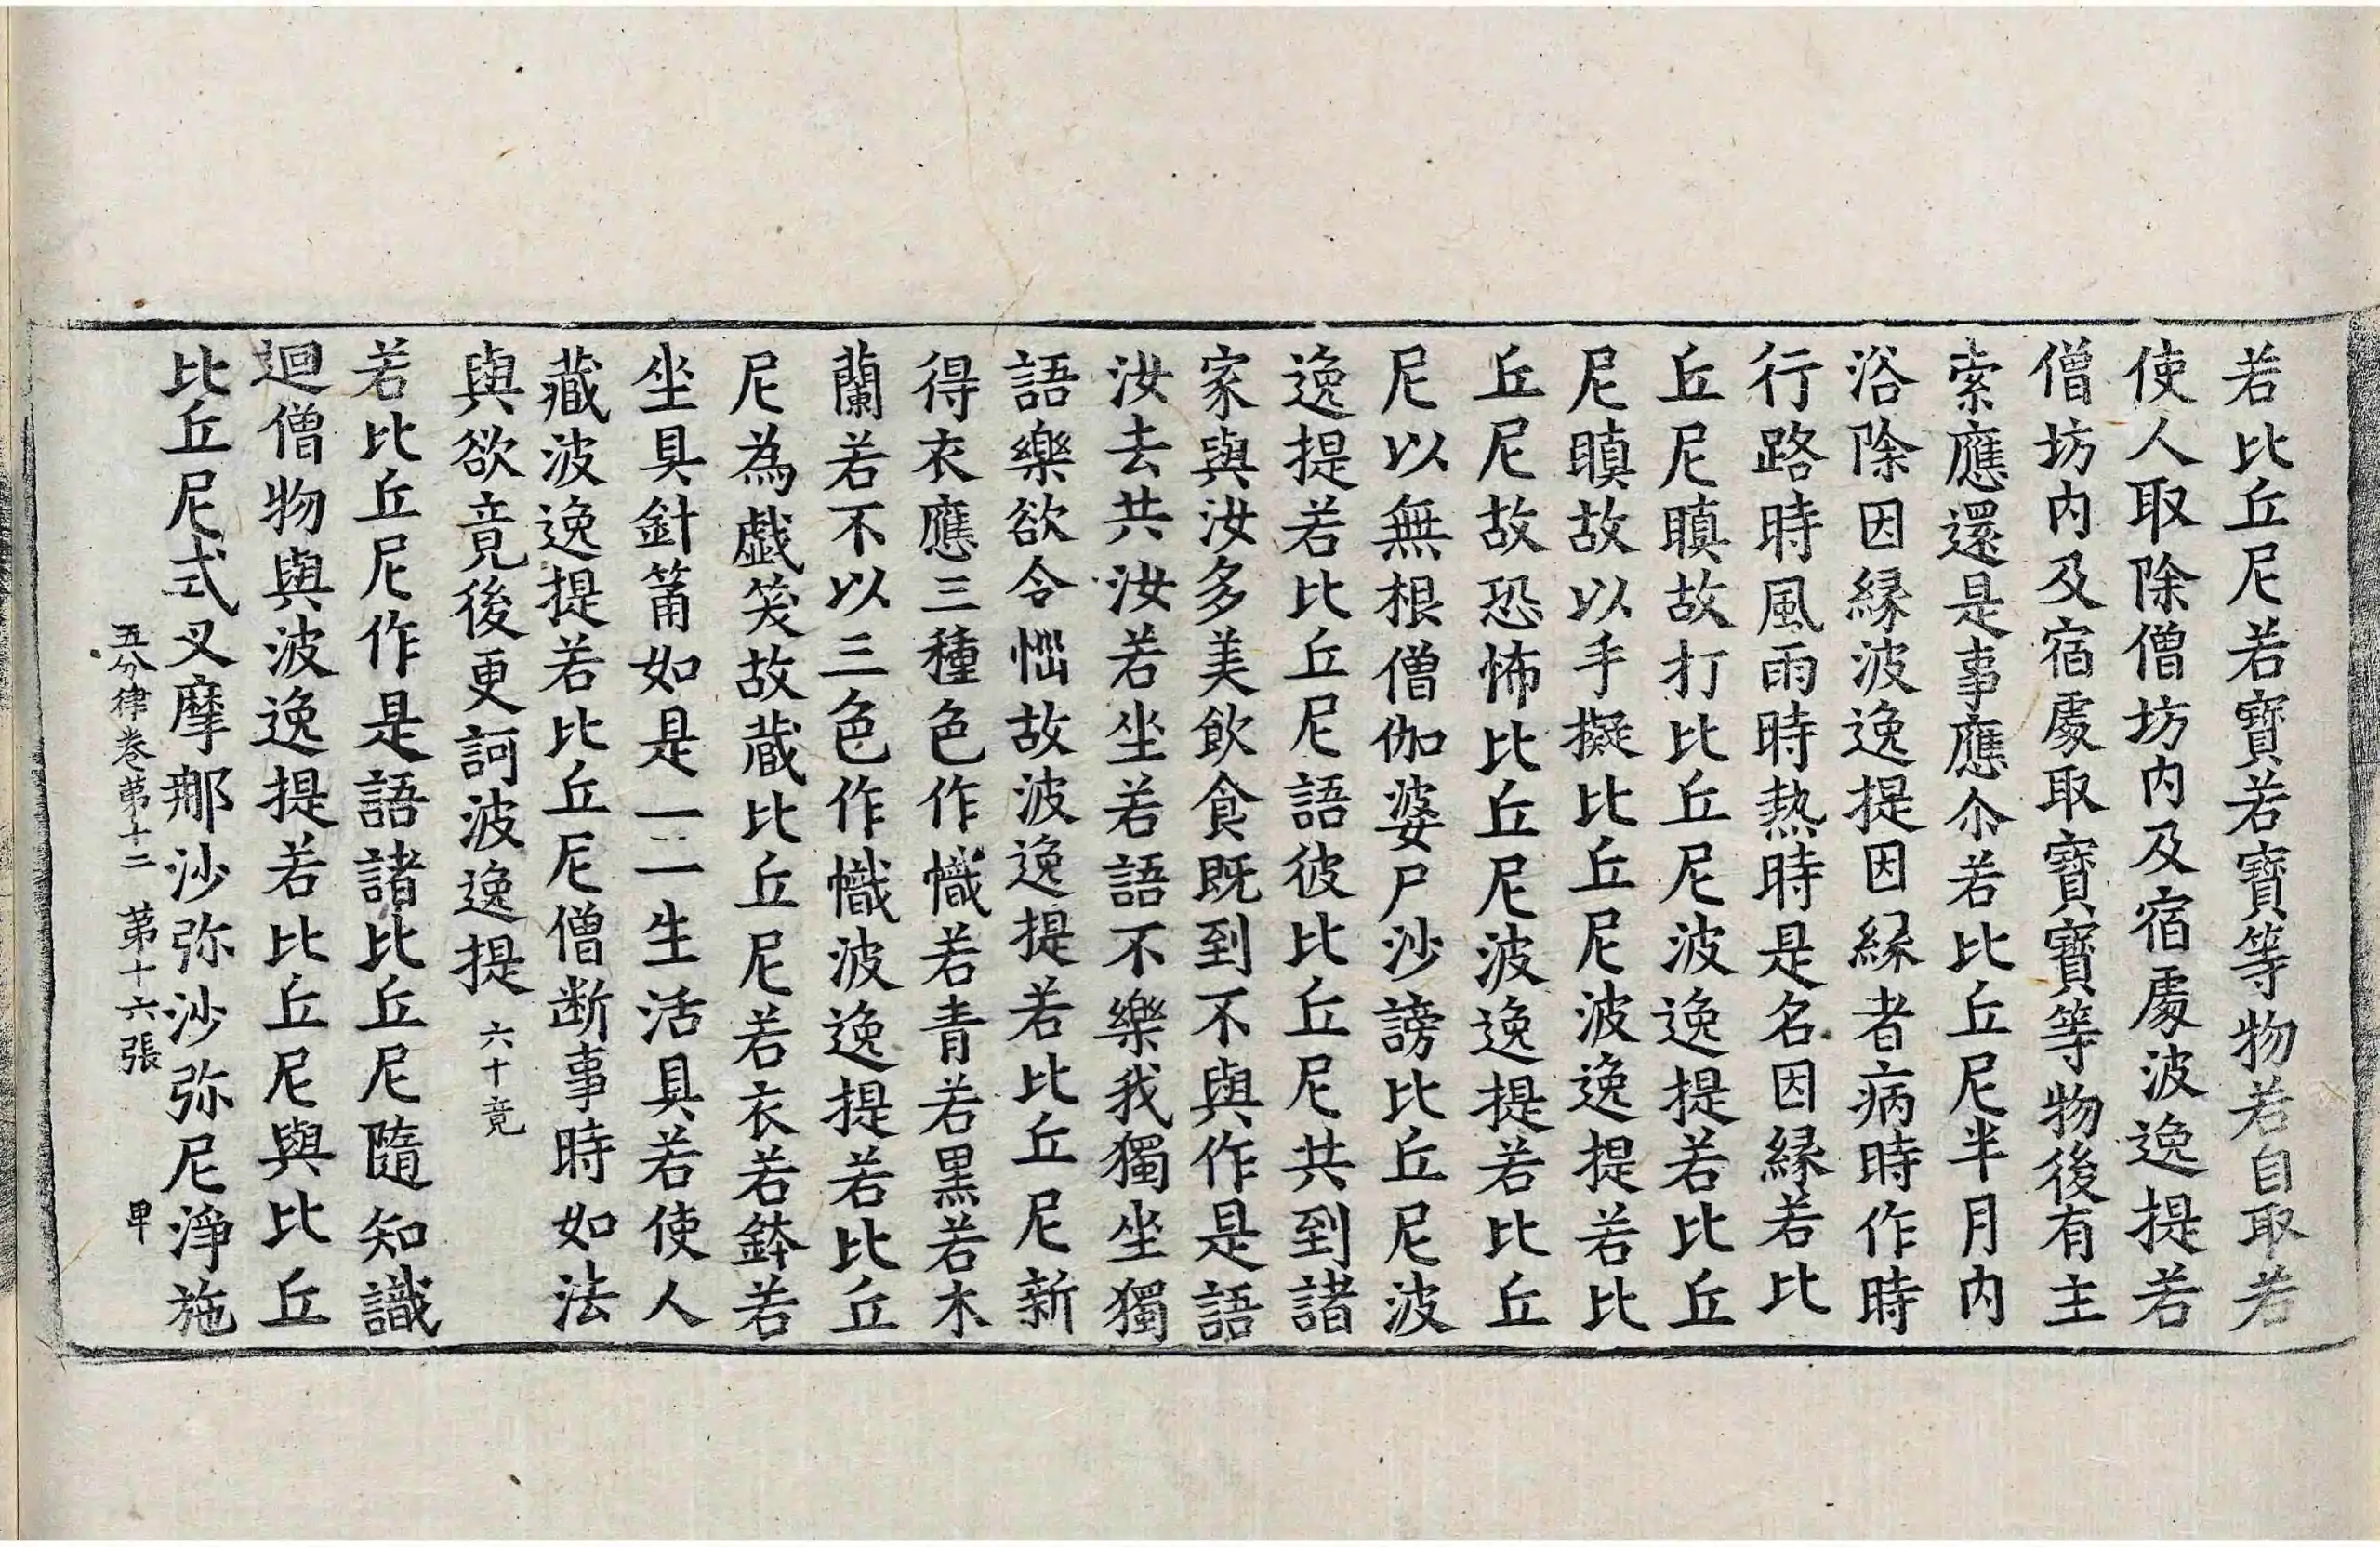 若比丘尼若寶若寶等物若自取若
使人取除僧坊内及宿處波逸提若
僧坊内及宿處取寶寶等物後有主
索應還是事應尒若比丘尼半月内
浴除因緣波逸提因緣者病時作時
行路時風雨時熱時是名因緣若比
丘尼瞋故打比丘尼波逸提若比丘
尼瞋故以手擬比丘尼波逸提若比
丘尼故恐怖比丘尼波逸提若比丘
尼以無根僧伽婆尸沙謗比丘尼波
逸提若比丘尼語彼比丘尼共到諸
家與汝多美飲食既到不與作是語
汝去共汝若坐若語不樂我獨坐獨
語樂欲令惱故波逸提若比丘尼新
得衣應三種色作幟若青若黒若木
蘭若不以三色作幟波逸提若比丘
尼為戯笑故蔵比丘尼若衣若鉢若
坐具針筩如是一一生活具若使人
藏波逸提若比丘尼僧断事時如法
與欲竟後更訶波逸提 六十竟
若比丘尼作是語諸比丘尼隨知識
迴僧物與波逸提若比丘尼與比丘
比丘尼式叉摩那沙弥沙弥尼淨施
五分律卷第十二 第十六張 甲